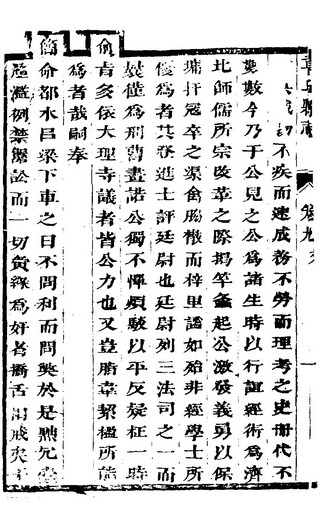 章丘縣志 卷九
不疾而速成務不勞而理考之史冊代不
數數今乃于公見之公為諸生時以行誼經術為濟
北師儒所宗改革之際揭竿蠭起公激發義勇以保
墉扞寇卒之渠禽脇散而梓里謐如殆非經學士所
優為者其登進士評廷尉也廷尉列三法司之一而
僅為刑曹畫諾公獨不憚煩駁以平反疑枉一時
俞肯多俟大理寺議者皆公力也又豈脂韋絜楹所能
為者哉嗣奉
簡命都水呂梁下車之日不問利而問獘於是釐冗
濫例禁獘訟而一切夤緣為奸者撟舌相戒矣于